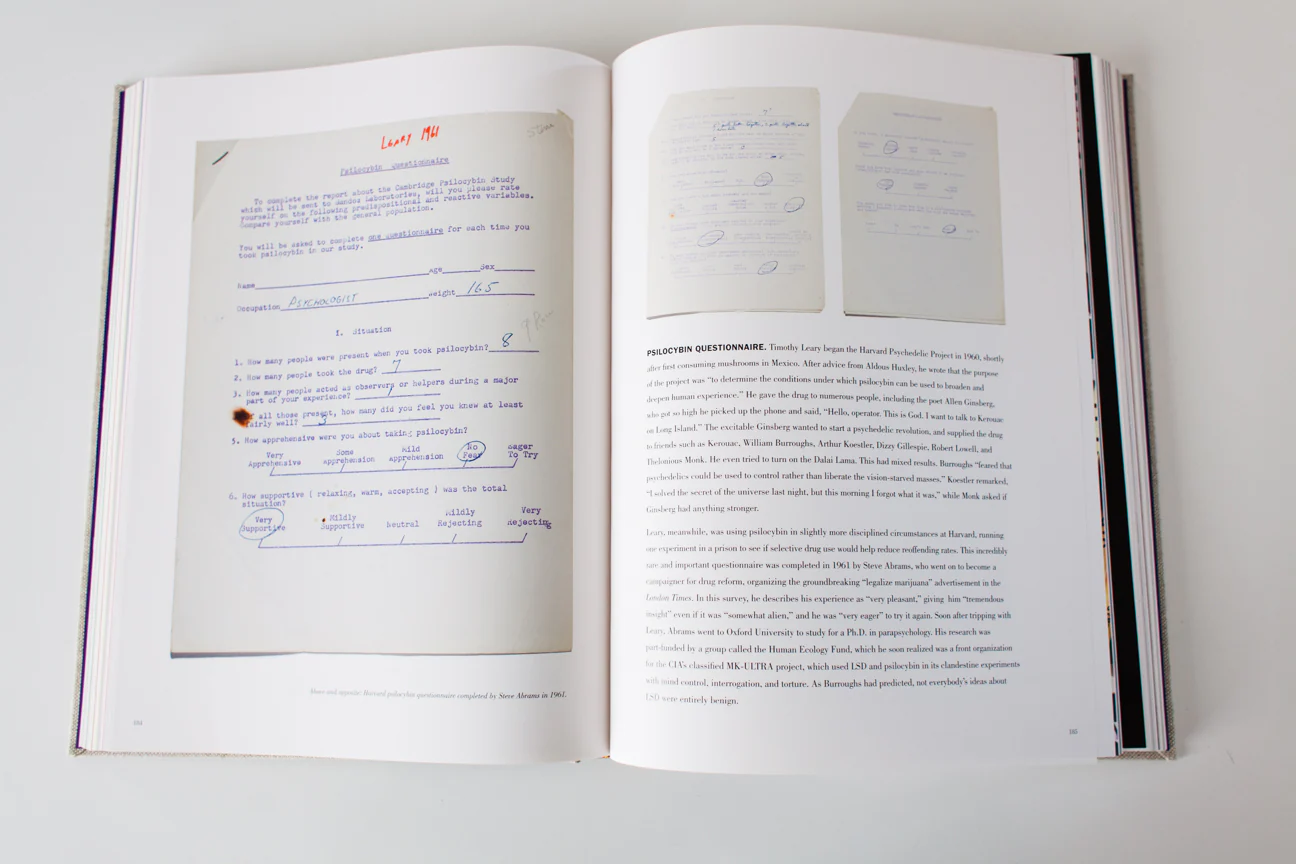 LEARY 1961
Psilocybin Questionnaire
To complete the report about the Cambridge Psilocybin Study
which will be sent to Sandoz Laboratories, will you please rate
yourself on the following predispositional and reactive variables.
Compare yourself with the general population.
You will be asked to complete one questionnaire for each time you
took psilocybin in our study.
Name Age Sex
Occupation PSYCHOLOGIST Weight 165
I. Situation
1. How many people were present when you took psilocybin? 8
2. How many people took the drug? 7
3. How many people acted as observers or helpers during a major
part of your experience? 1
all those present, how many did you feel you knew at least
fairly well? 3
5. How apprehensive were you about taking psilocybin?
Very Some Mild No Eager
Apprehensive apprehension apprehension Fear To Try
6. How supportive ( relaxing, warm, accepting ) was the total
situation?
Very Mildly Neutral Mildly Very
Supportive Supportive Rejecting Rejecting
Above and opposite: Harvard psilocybin questionnaire completed by Steve Abrams in 1961.
184
PSILOCYBIN QUESTIONNAIRE. Timothy Leary began the Harvard Psychedelic Project in 1960, shortly
after first consuming mushrooms in Mexico. After advice from Aldous Huxley, he wrote that the purpose
of the project was “to determine the conditions under which psilocybin can be used to broaden and
deepen human experience.” He gave the drug to numerous people, including the poet Allen Ginsberg,
who got so high he picked up the phone and said, “Hello, operator. This is God. I want to talk to Kerouac
on Long Island.” The excitable Ginsberg wanted to start a psychedelic revolution, and supplied the drug
to friends such as Kerouac, William Burroughs, Arthur Koestler, Dizzy Gillespie, Robert Lowell, and
Thelonious Monk. He even tried to turn on the Dalai Lama. This had mixed results. Burroughs “feared that
psychedelics could be used to control rather than liberate the vision-starved masses,” Koestler remarked,
“I solved the secret of the universe last night, but this morning I forgot what it was,” while Monk asked if
Ginsberg had anything stronger.
Leary, meanwhile, was using psilocybin in slightly more disciplined circumstances at Harvard, running
one experiment in a prison to see if selective drug use would help reduce reoffending rates. This incredibly
rare and important questionnaire was completed in 1961 by Steve Abrams, who went on to become a
campaigner for drug reform, organizing the groundbreaking “legalize marijuana” advertisement in the
London Times. In this survey, he describes his experience as “very pleasant,” giving him “tremendous
insight” even if it was “somewhat alien,” and he was “very eager” to try it again. Soon after tripping with
Leary, Abrams went to Oxford University to study for a Ph.D. in parapsychology. His research was
part-funded by a group called the Human Ecology Fund, which he soon realized was a front organization
for the CIA’s classified MK-ULTRA project, which used LSD and psilocybin in its clandestine experiments
with mind control, interrogation, and torture. As Burroughs had predicted, not everybody’s ideas about
LSD were entirely benign.
185